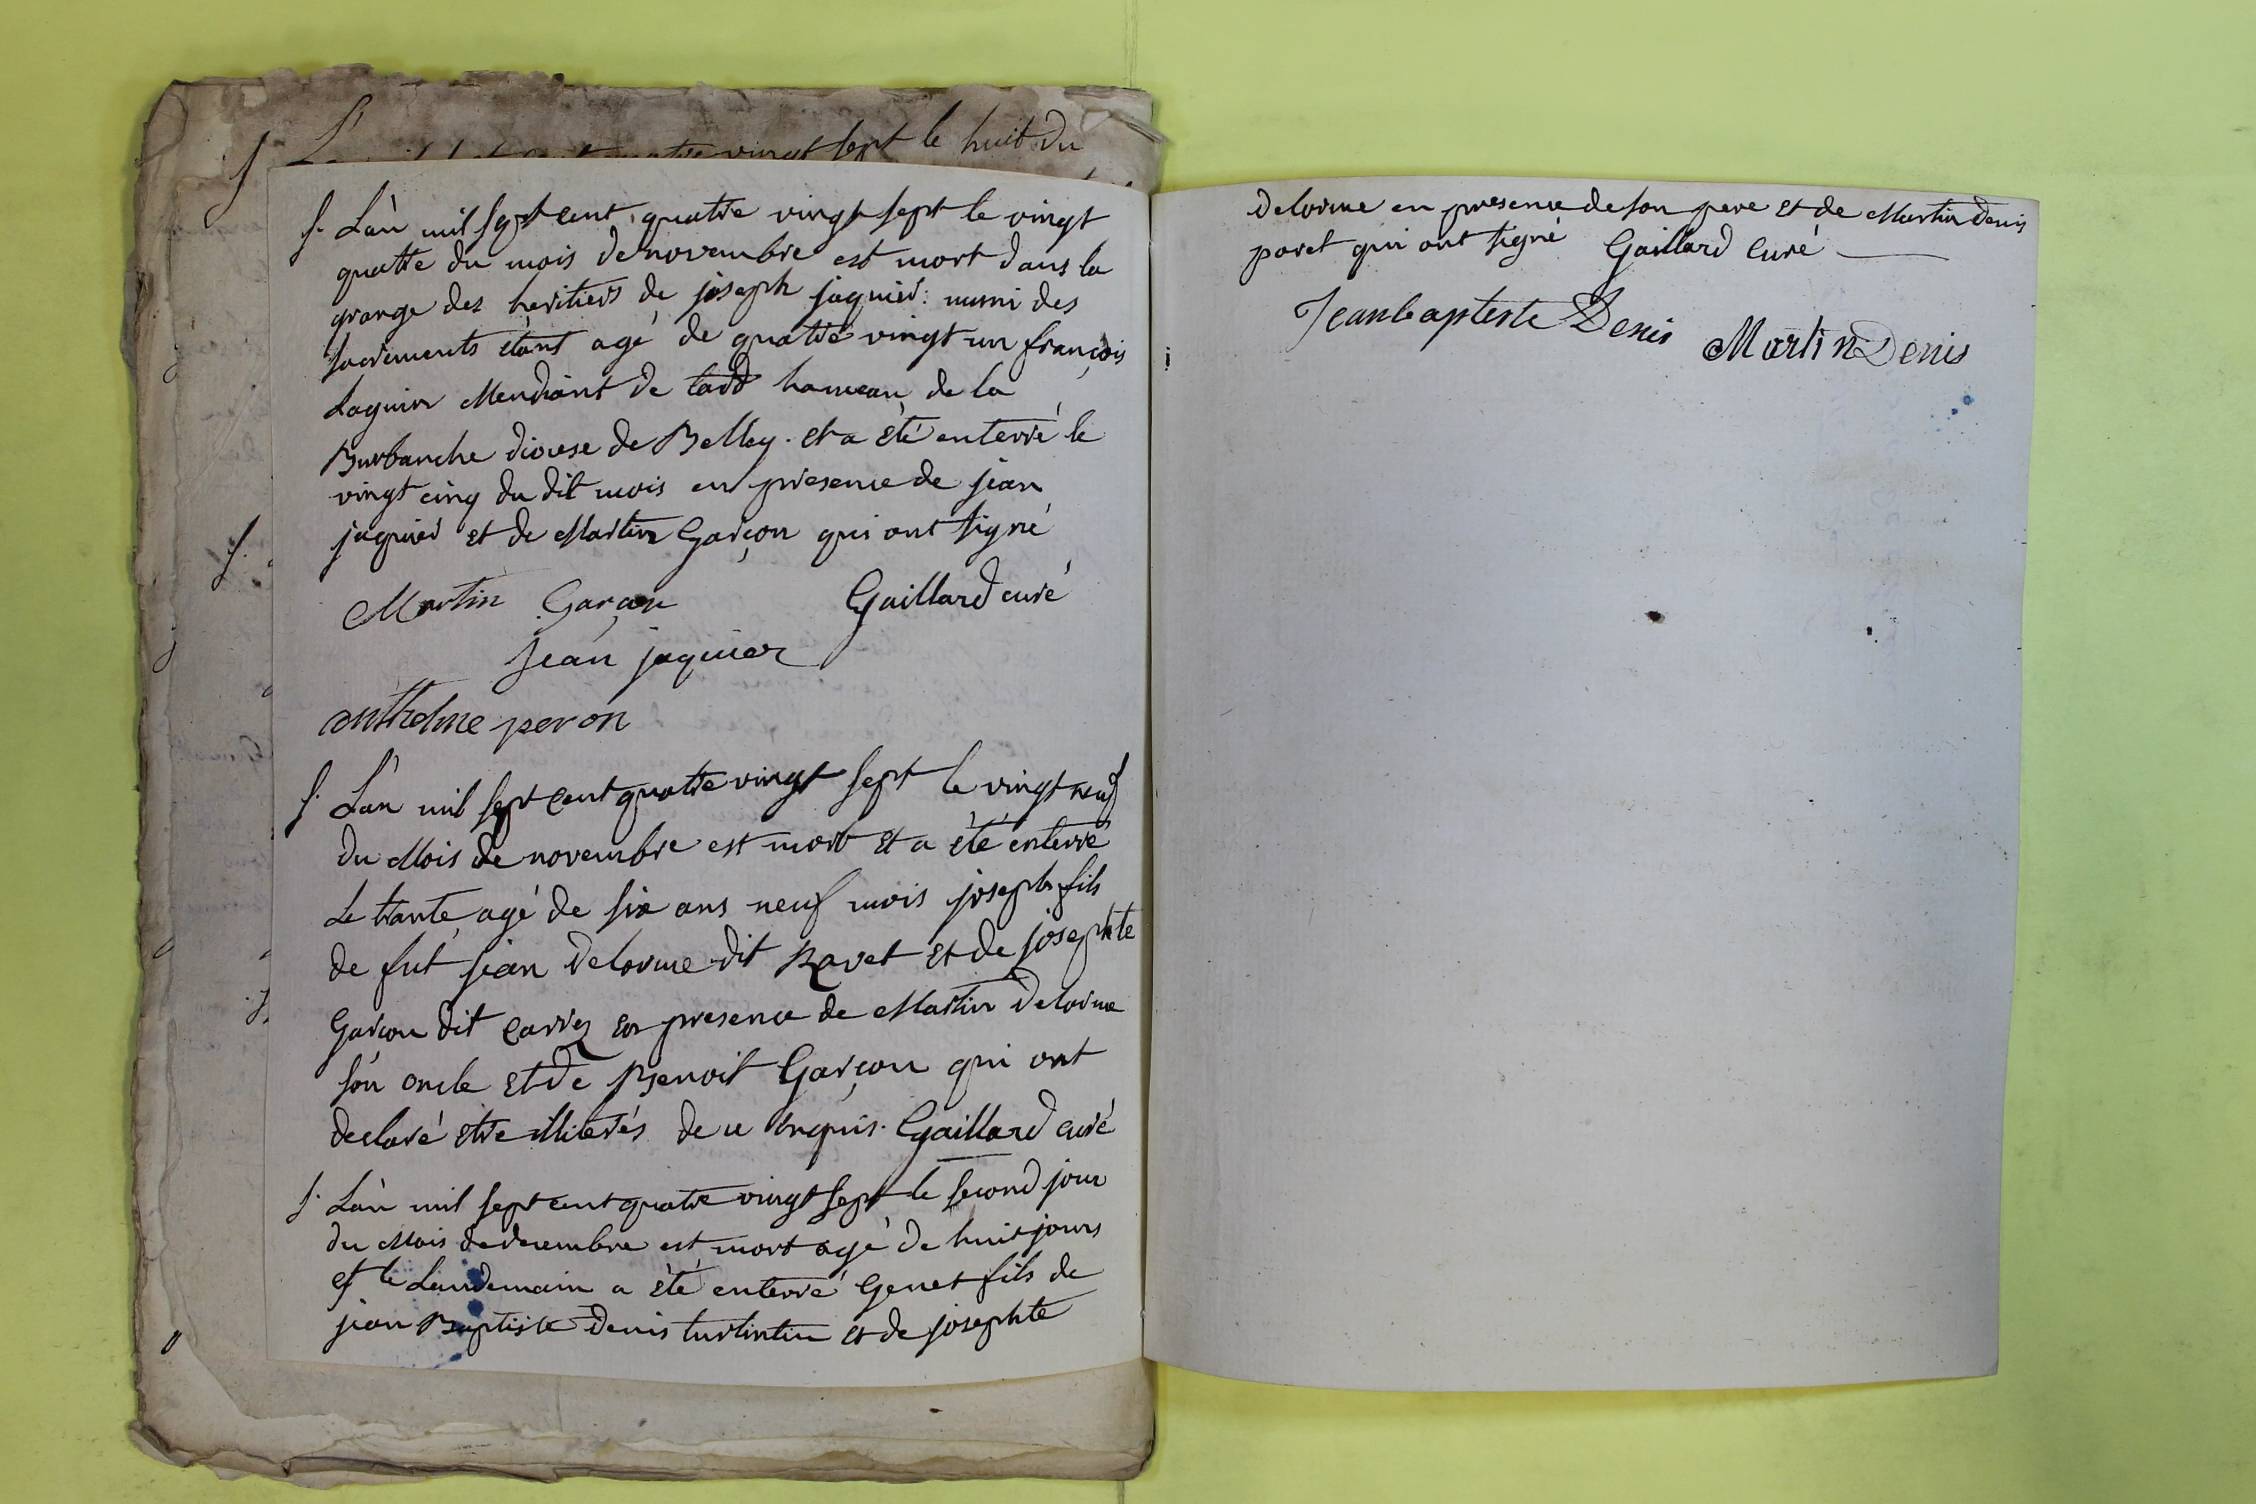 S. L'an mil sept cent quatre vingt sept le huit du
S. L'àn mil sept cent quatre vingt sept le vingt
quatre du mois de novembre est mort dans la
grange des heritiers de joseph jaquier muni des
sacrements étant agé de quatre vingt un françois
Laguin Mendiant de tard hameau de la
Burbanche diocese de Belley. et a été enterré le
vingt cinq du dit mois en presence de jean
jaquier et de Martin Garçon qui ont signé
Martin Garçon Gaillard curé
jean jaquier
anthelme peron
S. L'an mil sept cent quatre vingt sept le vingt neuf
du Mois de novembre est mort et a été enterré
Le trante agé de six ans neuf mois joseph fils
de fut jean Delorme dit Ravet et de josephte
Garçon dit Carrez en presence de Martin Delorme
son oncle et de Benoit Garçon qui ont
declaré etre illiterés de ce enquis. Gaillard curé
S. L'àn mil sept cent quatre vingt sept le second jour
du Mois de decembre est mort agé de huit jours
et le Landemain a été enterré Genet fils de
jean Baptiste Denis turlintin et de josephte
Delorme en presence de son pere et de Martin Denis
poret qui ont signé Gaillard Curé
Jean baptiste Denis Martin Denis